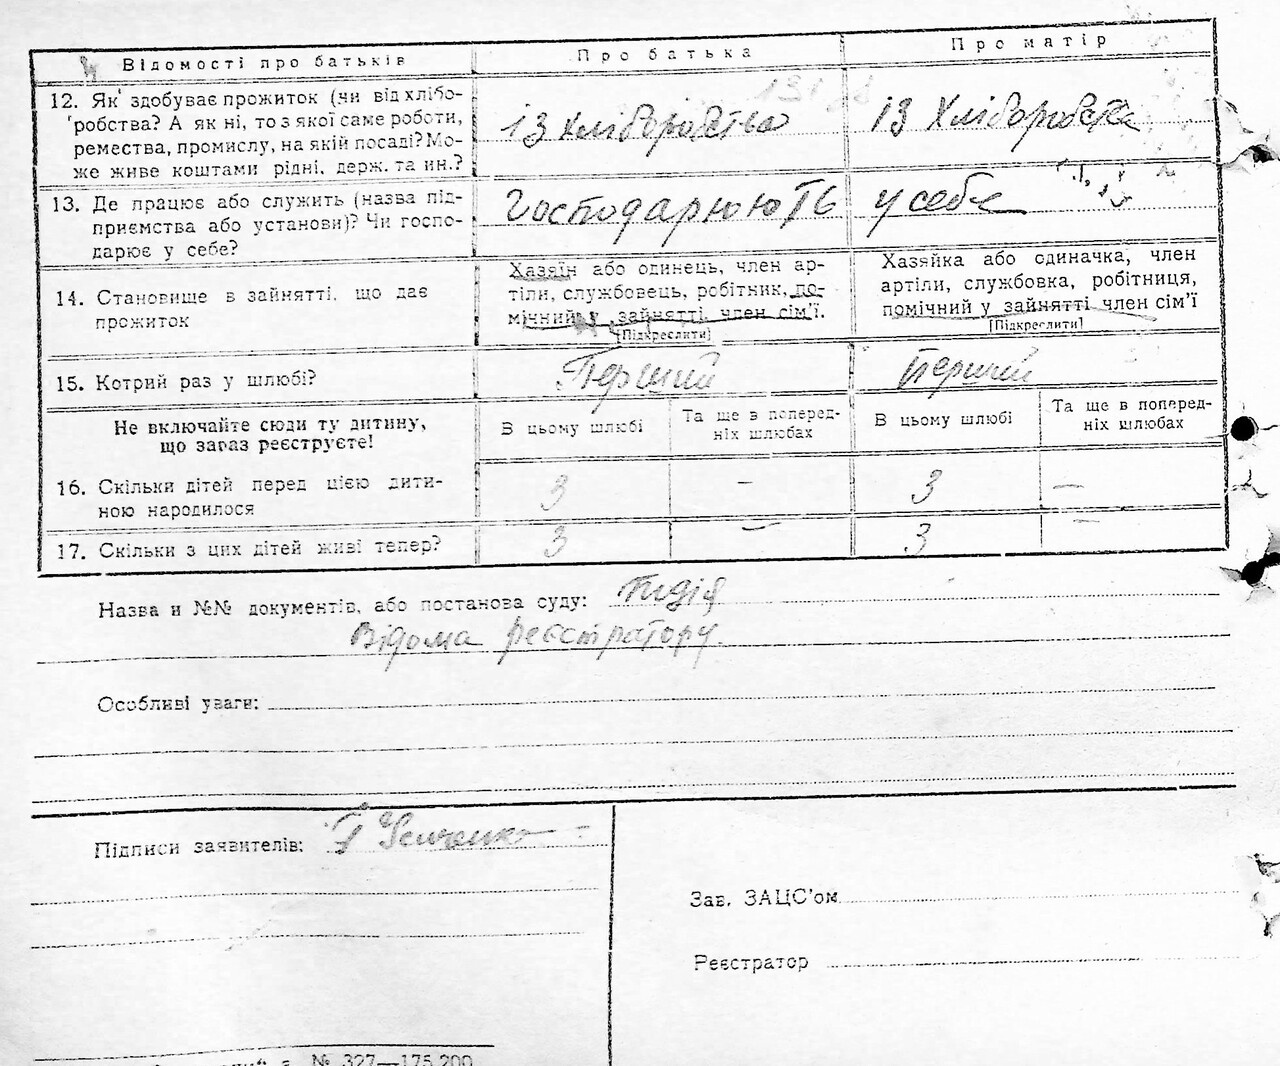 Відомості про батьків
Про батька
Про матір
12. Як здобуває прожиток (чи від хлібо-
робства? А як ні, то з якої саме роботи,
ремества, промислу, на якій посаді? Мо-
же живе коштами рідні, держ. та ин.?
із хліборобства
із хліборобства
13. Де працює або служить (назва під-
приємства або установи)? Чи госпо-
дарює у себе?
Господарюють
у себе
14. Становище в зайнятті, що дає
прожиток
Хазяїн або одинець, член ар-
тіли, службовець, робітник, по-
мічний у зайнятті член сім'ї.
[Підкреслити]
Хазяйка або одиначка, член
артіли, службовка, робітниця,
помічний у зайнятті член сім'ї
[Підкреслити]
15. Котрий раз у шлюбі?
Перший
Перший
Не включайте сюди ту дитину,
що зараз реєструєте!
В цьому шлюбі
Та ще в поперед-
ніх шлюбах
В цьому шлюбі
Та ще в поперед-
ніх шлюбах
16. Скільки дітей перед цією дити-
ною народилося
3
-
3
-
17. Скільки з цих дітей живі тепер?
3
-
3
-
Назва и №№ документів, або постанова суду:
Відома реєстратору.
Особливі уваги:
Підписи заявителів:
Зав. ЗАЦС'ом
Реєстратор
№ 327—175.200